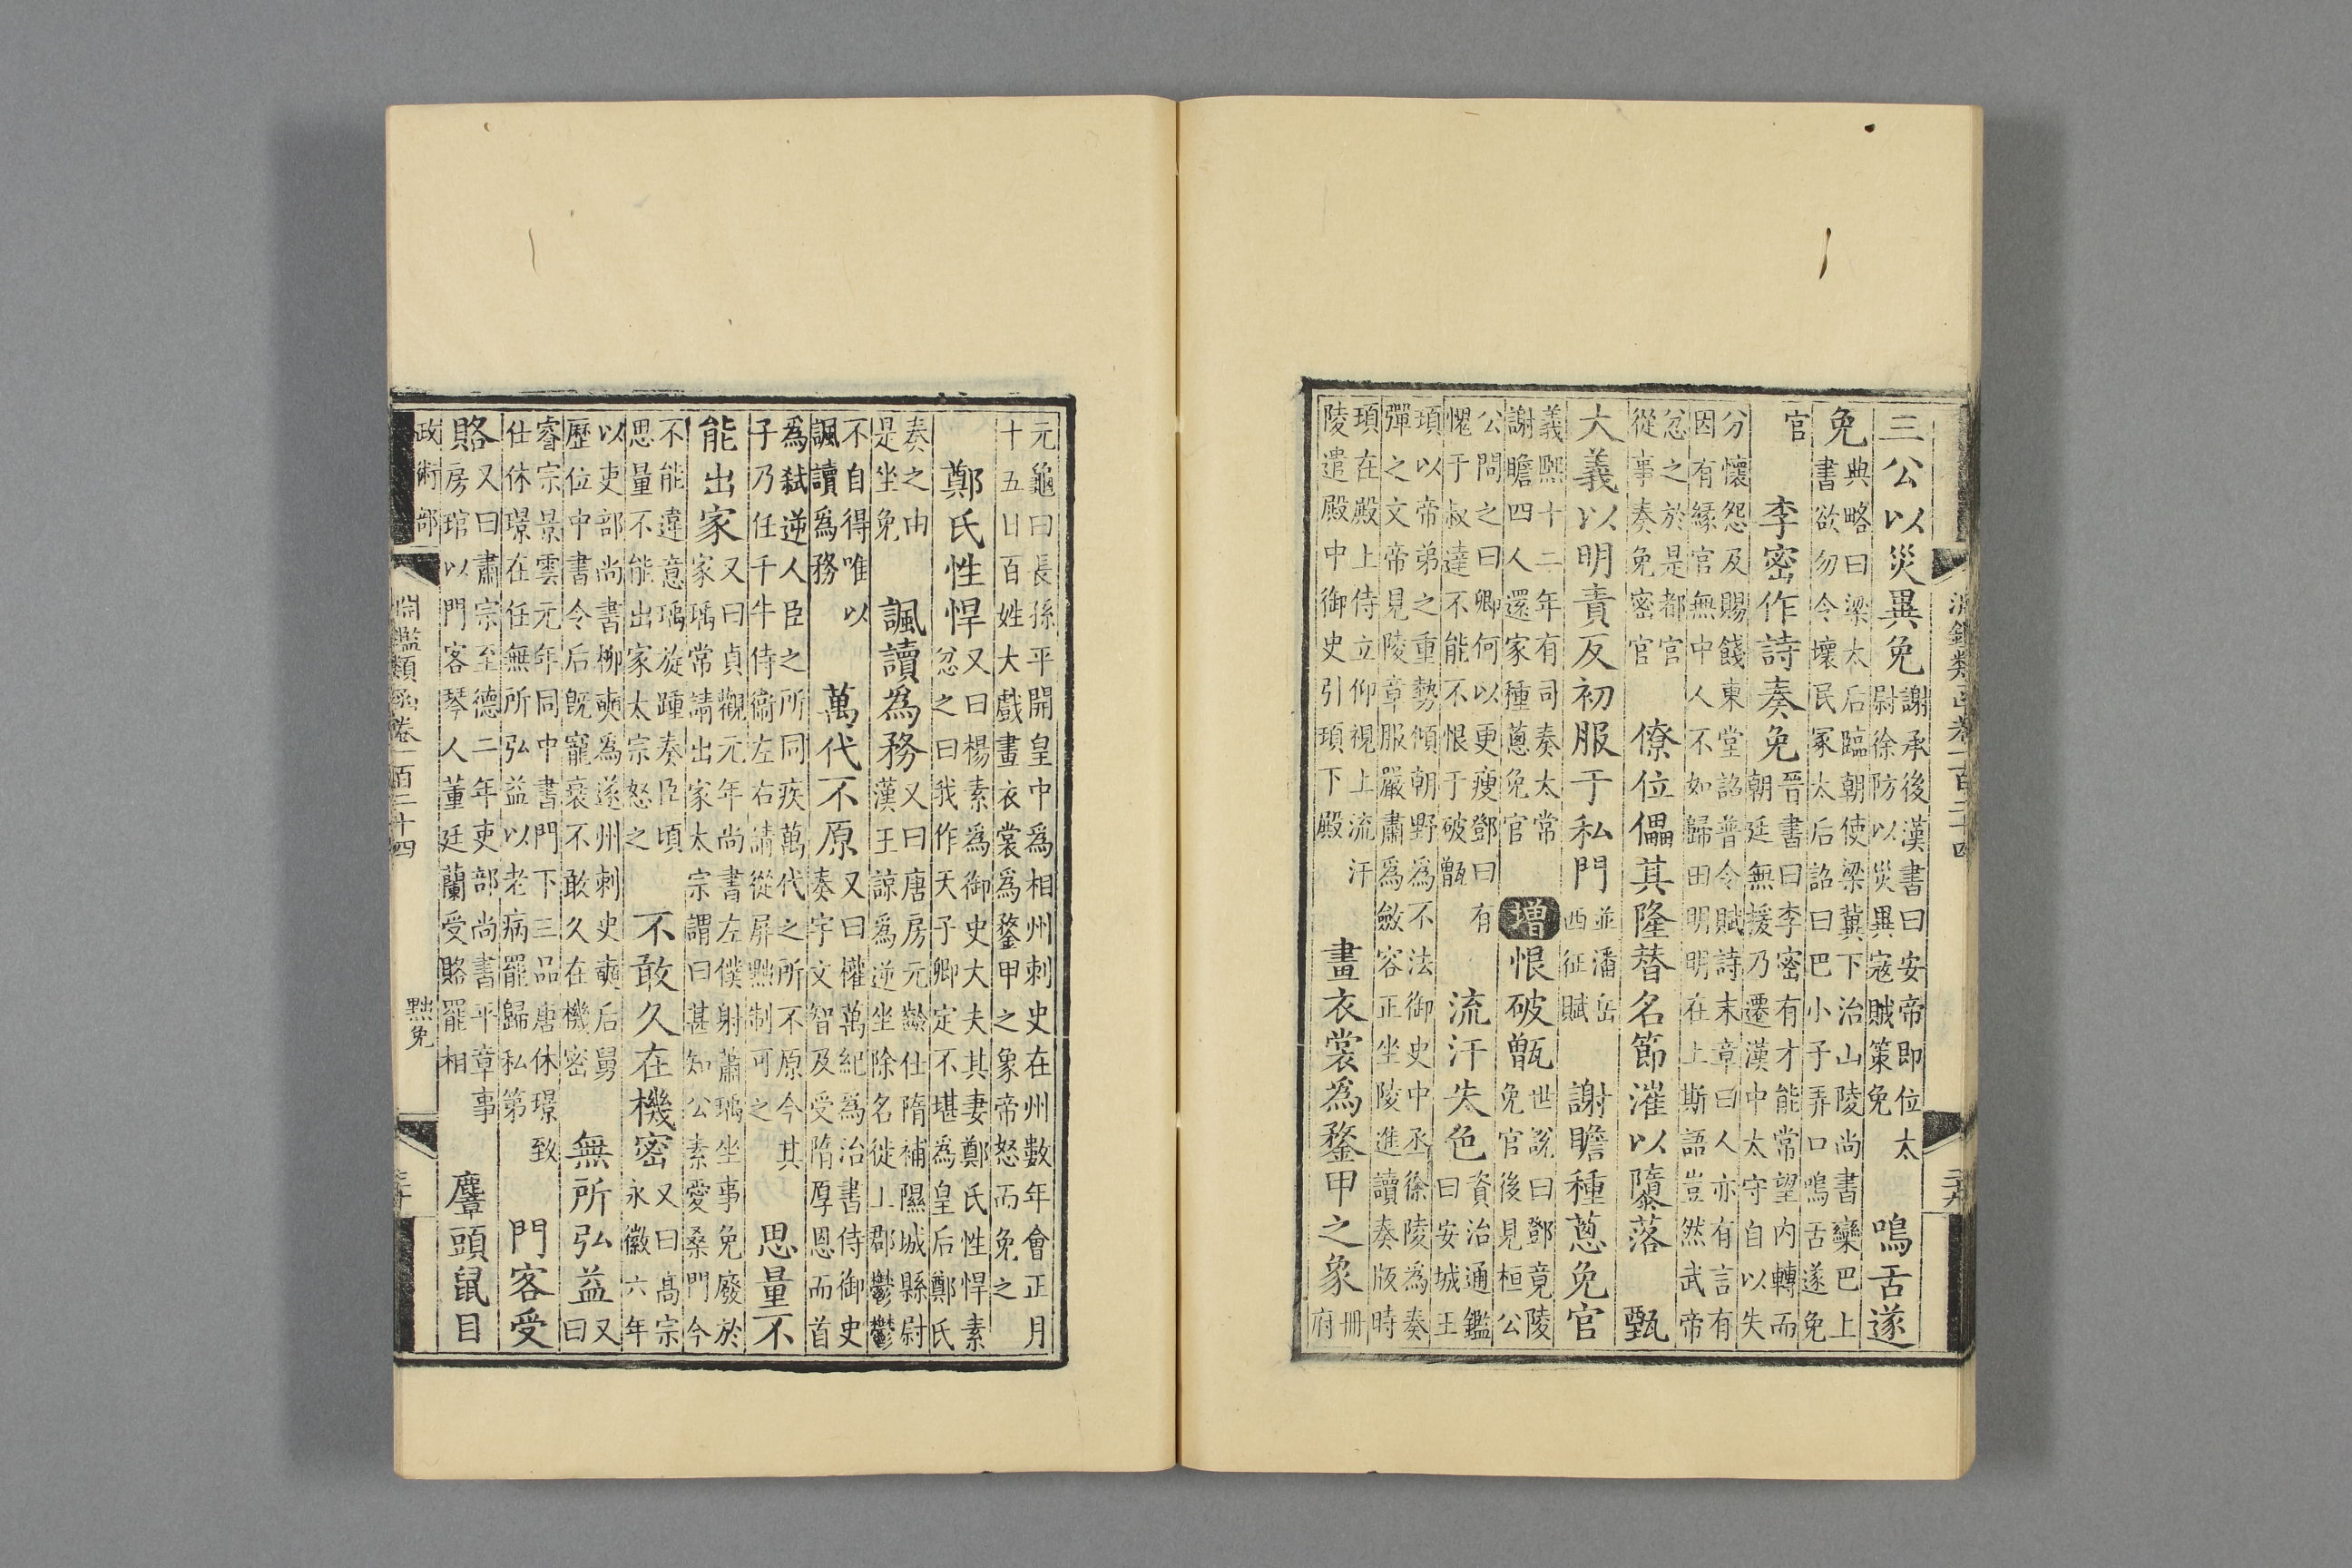 淵鑑類函卷一百二十四
三公以災異免
謝承後漢書曰安帝即位太
尉徐防以災異寇賊策免
鳴舌遂
免
典略曰梁太后臨朝使梁冀下治山陵尚書欒巴上
書欲勿令壞民冢太后詔曰巴小子弄口鳴舌遂免
官
李密作詩奏免
晉書曰李密有才能常望內轉而
朝廷無援乃遷漢中太守自以失
分懷怨及賜餞東堂詔普令賦詩末章曰人亦有言有
因有緣官無中人不如歸田明明在上斯語豈然武帝
忿之於是都官
從事奏免密官
僚位儡其隆替名節漼以隳落
甄
大義以明責反初服于私門
並潘岳
西征賦
謝瞻種蔥免官
義熙十二年有司奏太常
謝瞻四人還家種蔥免官
增
恨破甑
世說曰鄧竟陵
免官後見桓公
公問之曰卿何以更瘦鄧曰有
愧于叔達不能不恨于破甑
流汗失色
資治通鑑
曰安城王
頊以帝弟之重勢傾朝野為不法御史中丞徐陵為奏
彈之文帝見陵章服嚴肅為斂容正坐陵進讀奏版時
頊在殿上侍立仰視上流汗
陵遣殿中御史引頊下殿
畫衣裳為鍪甲之象
冊
府
元龜曰長孫平開皇中為相州刺史在州數年會正月
十五日百姓大戲畫衣裳為鍪甲之象帝怒而免之
鄭氏性悍
又曰楊素為御史大夫其妻鄭氏性悍素
忿之曰我作天子卿定不堪為皇后鄭氏
奏之由
是坐免
諷讀為務
又曰唐房元齡仕隋補隰城縣尉
漢王諒為逆坐除名徙上郡鬱鬱
不自得唯以
諷讀為務
萬代不原
又曰權萬紀為治書侍御史
奏宇文智及受隋厚恩而首
為弒逆人臣之所同疾萬代之所不原今其
子乃任千牛侍衛左右請從屏黜制可之
思量不
能出家
又曰貞觀元年尚書左僕射蕭瑀坐事免廢於
家瑀常請出家太宗謂曰甚知公素愛桑門今
不能違意瑀旋踵奏臣頃
思量不能出家太宗怒之
不敢久在機密
又曰高宗
永徽六年
以吏部尚書柳奭為遂州刺史奭后舅
歷位中書令后既寵衰不敢久在機密
無所弘益
又
曰
睿宗景雲元年同中書門下三品唐休璟致
仕休璟在任無所弘益以老病罷歸私第
門客受
賂
又曰肅宗至德二年吏部尚書平章事
房琯以門客琴人董廷蘭受賂罷相
麞頭鼠目
政術部
淵鑑類函卷一百二十四
黜免